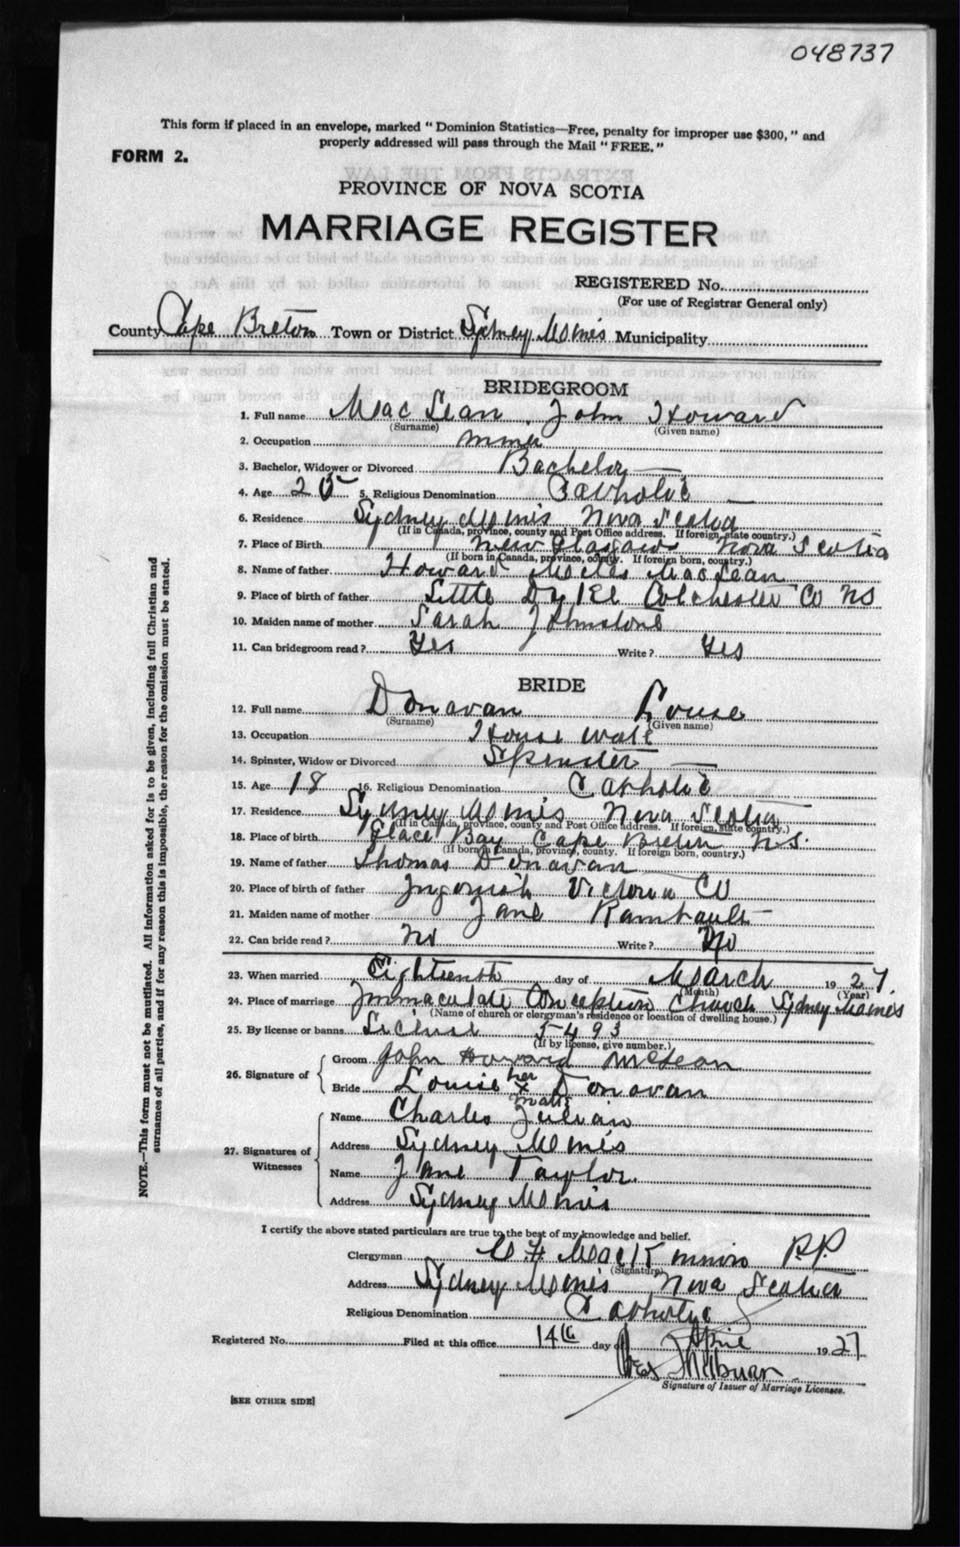 048737
This form if placed in an envelope, marked "Dominion Statistics—Free, penalty for improper use $300," and
properly addressed will pass through the Mail "FREE."
FORM 2.
PROVINCE OF NOVA SCOTIA
MARRIAGE REGISTER
REGISTERED No.
(For use of Registrar General only)
County Cape Breton Town or District Sydney Mines Municipality
BRIDEGROOM
1. Full name MacLean John Howard
(Surname) (Given name)
2. Occupation miner
3. Bachelor, Widower or Divorced Bachelor
4. Age 20 5. Religious Denomination Catholic
6. Residence Sydney Mines Nova Scotia
(If in Canada, province, county and Post Office address. If foreign, state country.)
7. Place of Birth New Glasgow Nova Scotia
(If born in Canada, province, county. If foreign born, country.)
8. Name of father Howard MacLean
9. Place of birth of father Little Dyke Colchester Co NS
10. Maiden name of mother Sarah Johnstone
11. Can bridegroom read? Yes Write? Yes
BRIDE
12. Full name Donavan Louise
(Surname) (Given name)
13. Occupation House work
14. Spinster, Widow or Divorced Spinster
15. Age 18 16. Religious Denomination Catholic
17. Residence Sydney Mines Nova Scotia
(If in Canada, province, county and Post Office address. If foreign, state country.)
18. Place of birth Glace Bay Cape Breton N.S.
(If born in Canada, province, county. If foreign born, country.)
19. Name of father Thomas Donavan
20. Place of birth of father Ingonish Victoria Co
21. Maiden name of mother Jane Rambault
22. Can bride read? No Write? No
23. When married Eighteenth day of March 1927.
(Month) (Year)
24. Place of marriage Immaculate Conception Church Sydney Mines
(Name of church or clergyman's residence or location of dwelling house.)
25. By license or banns License 5493
(If by license, give number.)
26. Signature of
Groom John Howard McLean
Bride Louise her x mark Donavan
27. Signatures of Witnesses
Name Charles Julian
Address Sydney Mines
Name Jane Taylor.
Address Sydney Mines
I certify the above stated particulars are true to the best of my knowledge and belief.
Clergyman MacKinnon P.P.
(Signature)
Address Sydney Mines Nova Scotia
Religious Denomination Catholic
Registered No. Filed at this office 14th day of April 1927
Signature of Issuer of Marriage Licenses.
[SEE OTHER SIDE]
NOTE.—This form must not be mutilated. All information asked for is to be given, including full Christian and
surnames of all parties, and if for any reason this is impossible, the reason for the omission must be stated.